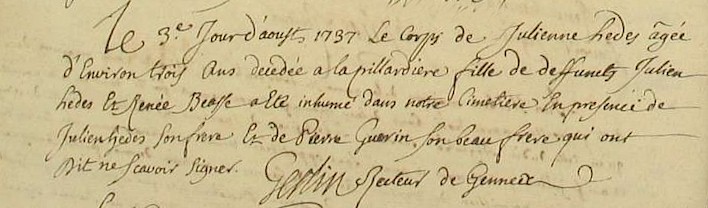 Le 3.e Jour d'aoust 1737 Le Corps de Julienne hedes âgée
d'Environ trois Ans decedée a la pillardiere fille de deffunts Julien
hedes Et Renée Beasse a Eté inhumé dans notre Cimetiere En presence de
Julien hedes son frere Et de Pierre Guerin son beau frere qui ont
Dit ne scavoir signer. Geslin Recteur de Gennees